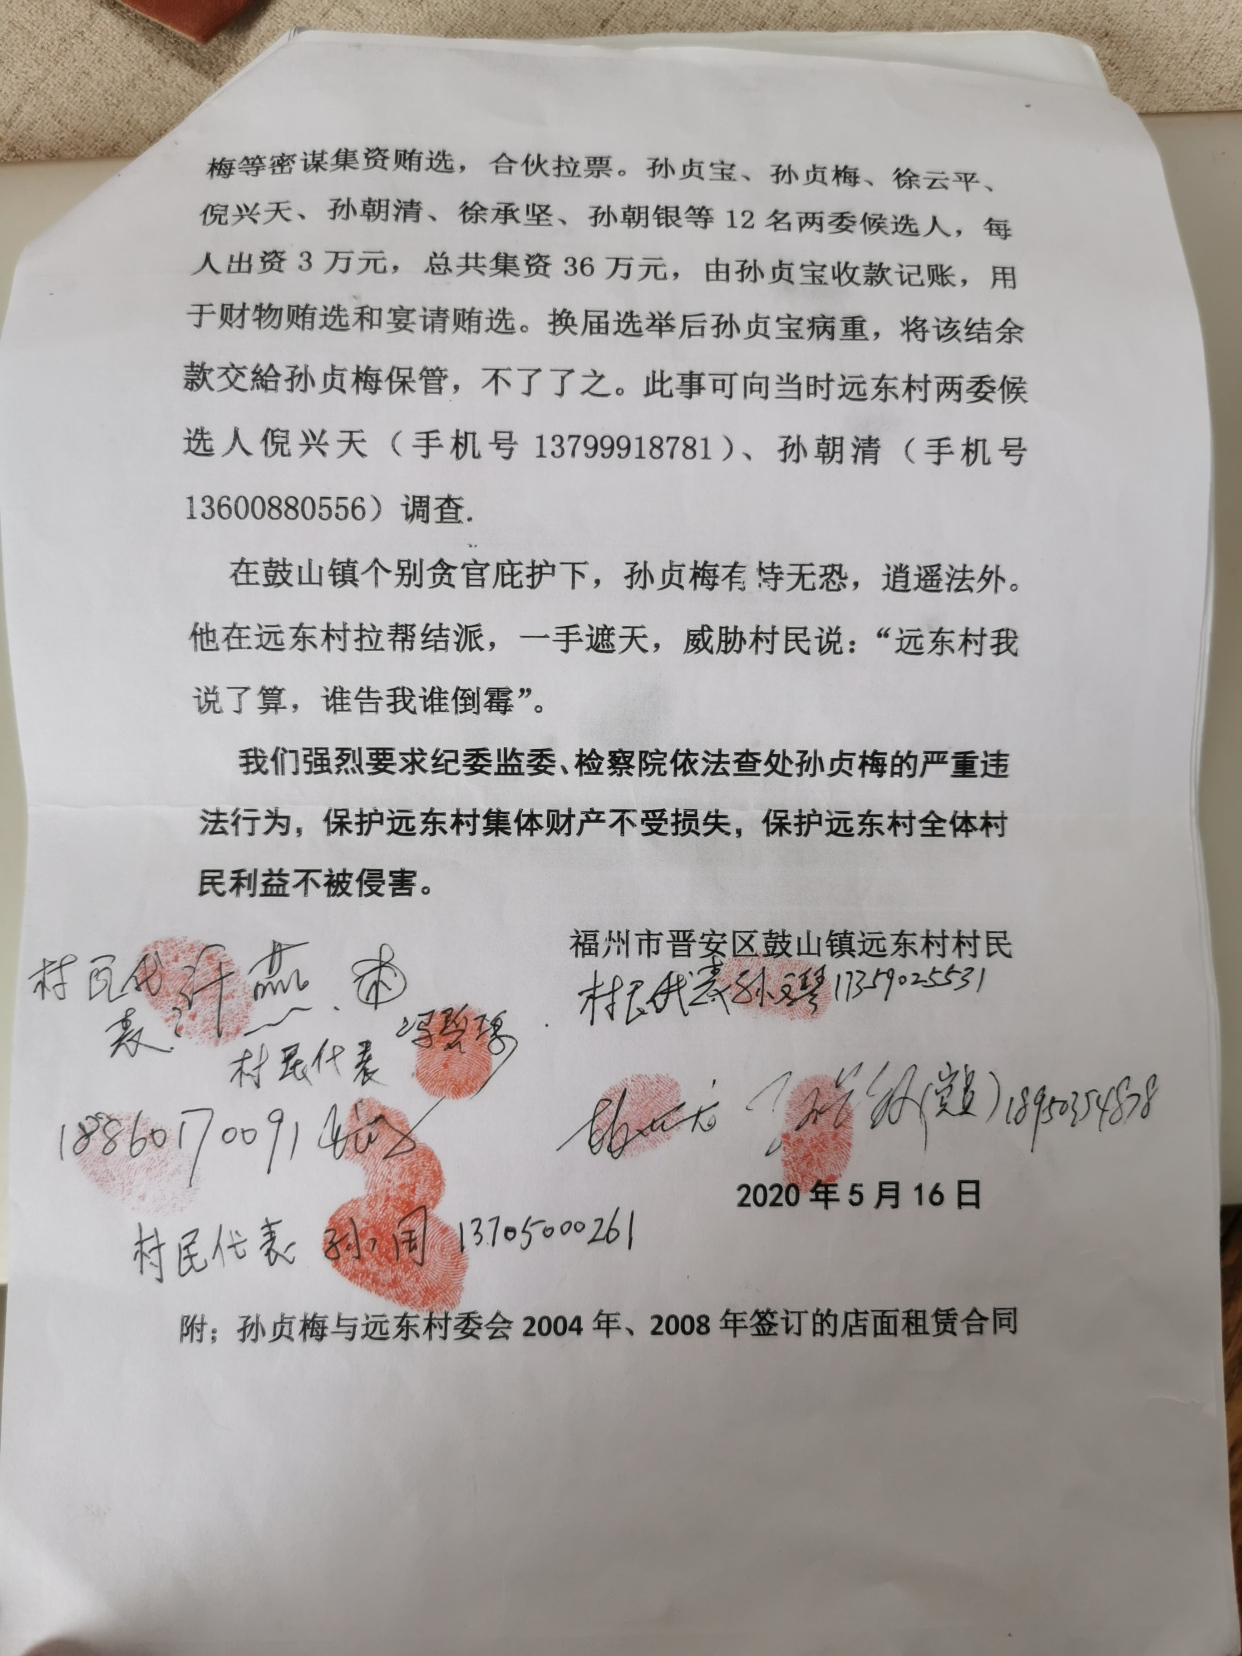 梅等密谋集资贿选，合伙拉票。孙贞宝、孙贞梅、徐云平、
倪兴天、孙朝清、徐承坚、孙朝银等 12 名两委候选人，每
人出资 3 万元，总共集资 36 万元，由孙贞宝收款记账，用
于财物贿选和宴请贿选。换届选举后孙贞宝病重，将该结余
款交給孙贞梅保管，不了了之。此事可向当时远东村两委候
选人倪兴天（手机号 13799918781）、孙朝清（手机号
13600880556）调查.
在鼓山镇个别贪官庇护下，孙贞梅有恃无恐，逍遥法外。
他在远东村拉帮结派，一手遮天，威胁村民说：“远东村我
说了算，谁告我谁倒霉”。
我们强烈要求纪委监委、检察院依法查处孙贞梅的严重违
法行为，保护远东村集体财产不受损失，保护远东村全体村
民利益不被侵害。
福州市晋安区鼓山镇远东村村民
村民代表 孙文琴 17359025531
村民代表 许燕
村民代表 冯碧
(党员) 18950354878
18860170091
2020 年 5 月 16 日
村民代表 孙 国 13705000261
附；孙贞梅与远东村委会 2004 年、2008 年签订的店面租赁合同